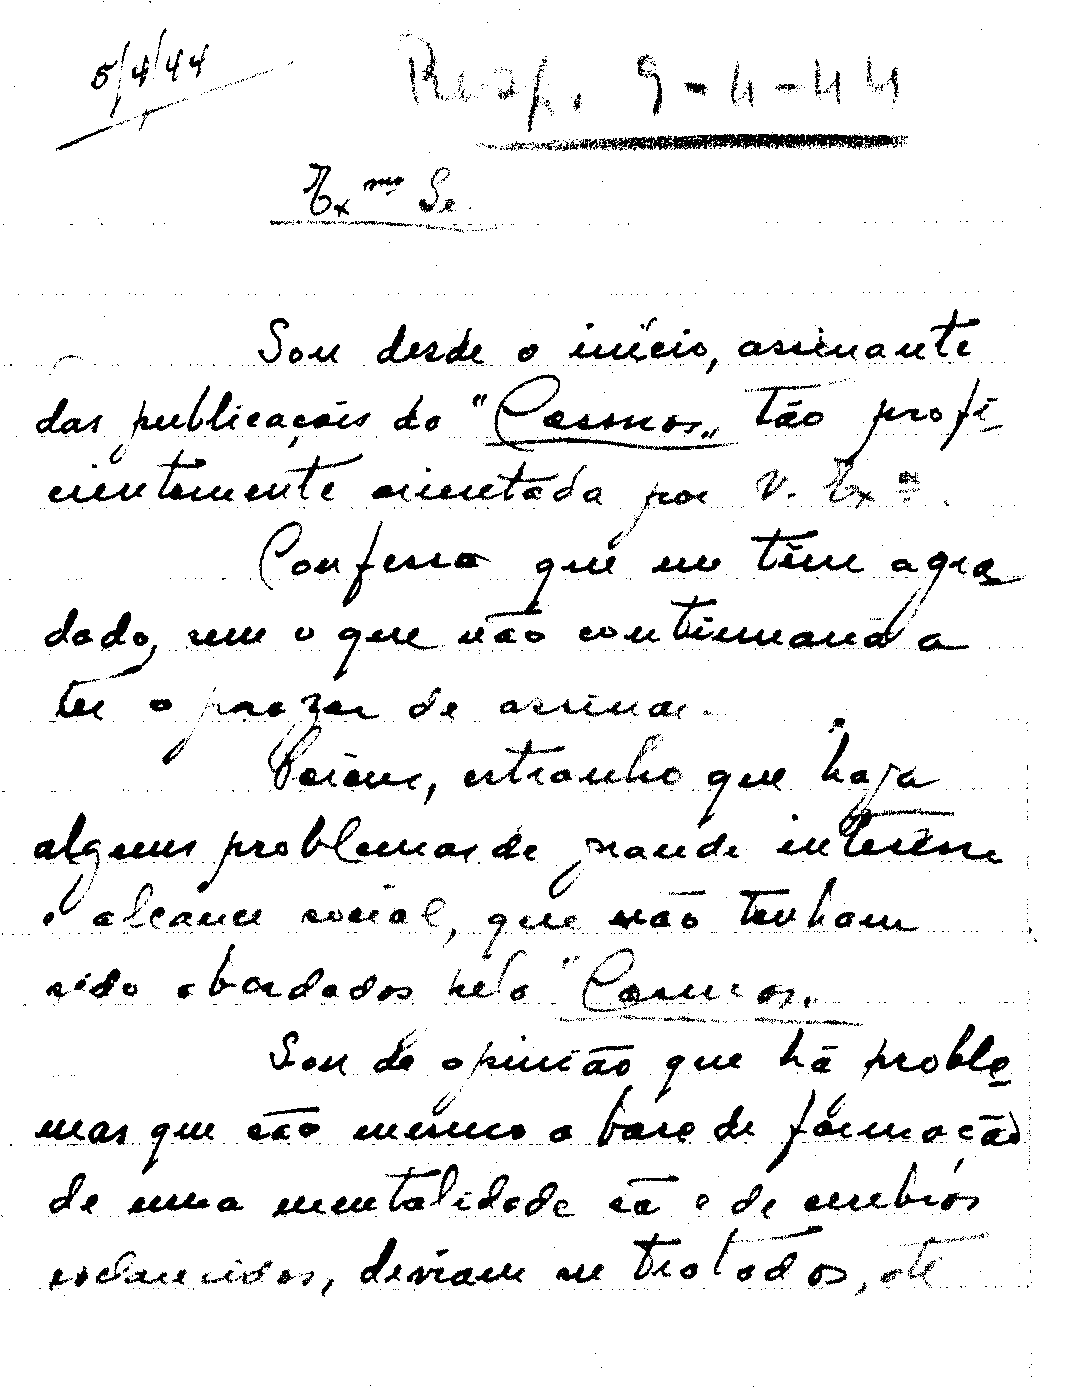 5/4/44
Resp. 9-4-44
Exmo Sr.
Sou desde o início, assinante
das publicações do "Cosmos", tão profi-
cientemente orientada por V. Exª.
Confesso que me têm agra-
dado, sem o que não continuaria a
ter o prazer de assinar.
Porém, estranho que haja
alguns problemas de grande interêsse
e alcance social, que não tenham
sido abordados pelo "Cosmos".
Sou de opinião que há proble-
mas que são mesmo a base de formação
de uma mentalidade sã e de cerebros
esclarecidos, deviam ser tratados, até